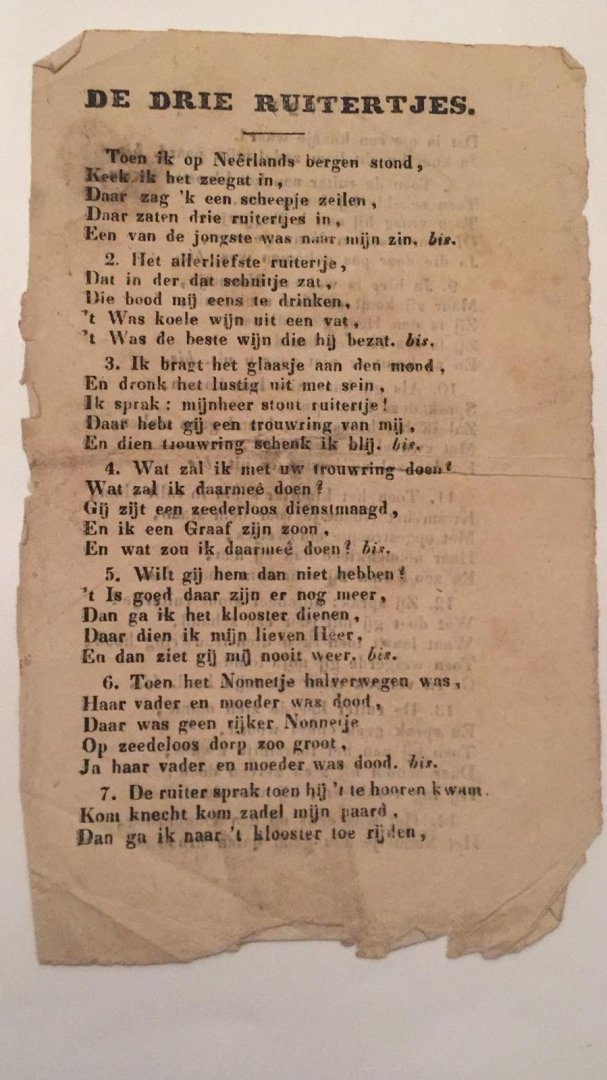 DE DRIE RUITERTJES.
Toen ik op Neêrlands bergen stond,
Keek ik het zeegat in,
Daar zag 'k een scheepje zeilen,
Daar zaten drie ruitertjes in,
Een van de jongste was naar mijn zin. bis.
2. Het allerliefste ruitertje,
Dat in der dat schuitje zat,
Die bood mij eens te drinken,
't Was koele wijn uit een vat,
't Was de beste wijn die hij bezat. bis.
3. Ik bragt het glaasje aan den mond,
En dronk het lustig uit met sein,
Ik sprak: mijnheer stout ruitertje!
Daar hebt gij een trouwring van mij,
En dien trouwring schenk ik blij. bis.
4. Wat zal ik met uw trouwring doen?
Wat zal ik daarmeê doen?
Gij zijt een zeederloos dienstmaagd,
En ik een Graaf zijn zoon,
En wat zou ik daarmeê doen? bis.
5. Wilt gij hem dan niet hebben?
't Is goed daar zijn er nog meer,
Dan ga ik het klooster dienen,
Daar dien ik mijn lieven Heer,
En dan ziet gij mij nooit weer. bis.
6. Toen het Nonnetje halverwegen was,
Haar vader en moeder was dood,
Daar was geen rijker Nonnetje
Op zeedeloos dorp zoo groot,
Ja haar vader en moeder was dood. bis.
7. De ruiter sprak toen hij 't te hooren kwam.
Kom knecht kom zadel mijn paard,
Dan ga ik naar 't klooster toe rijden,